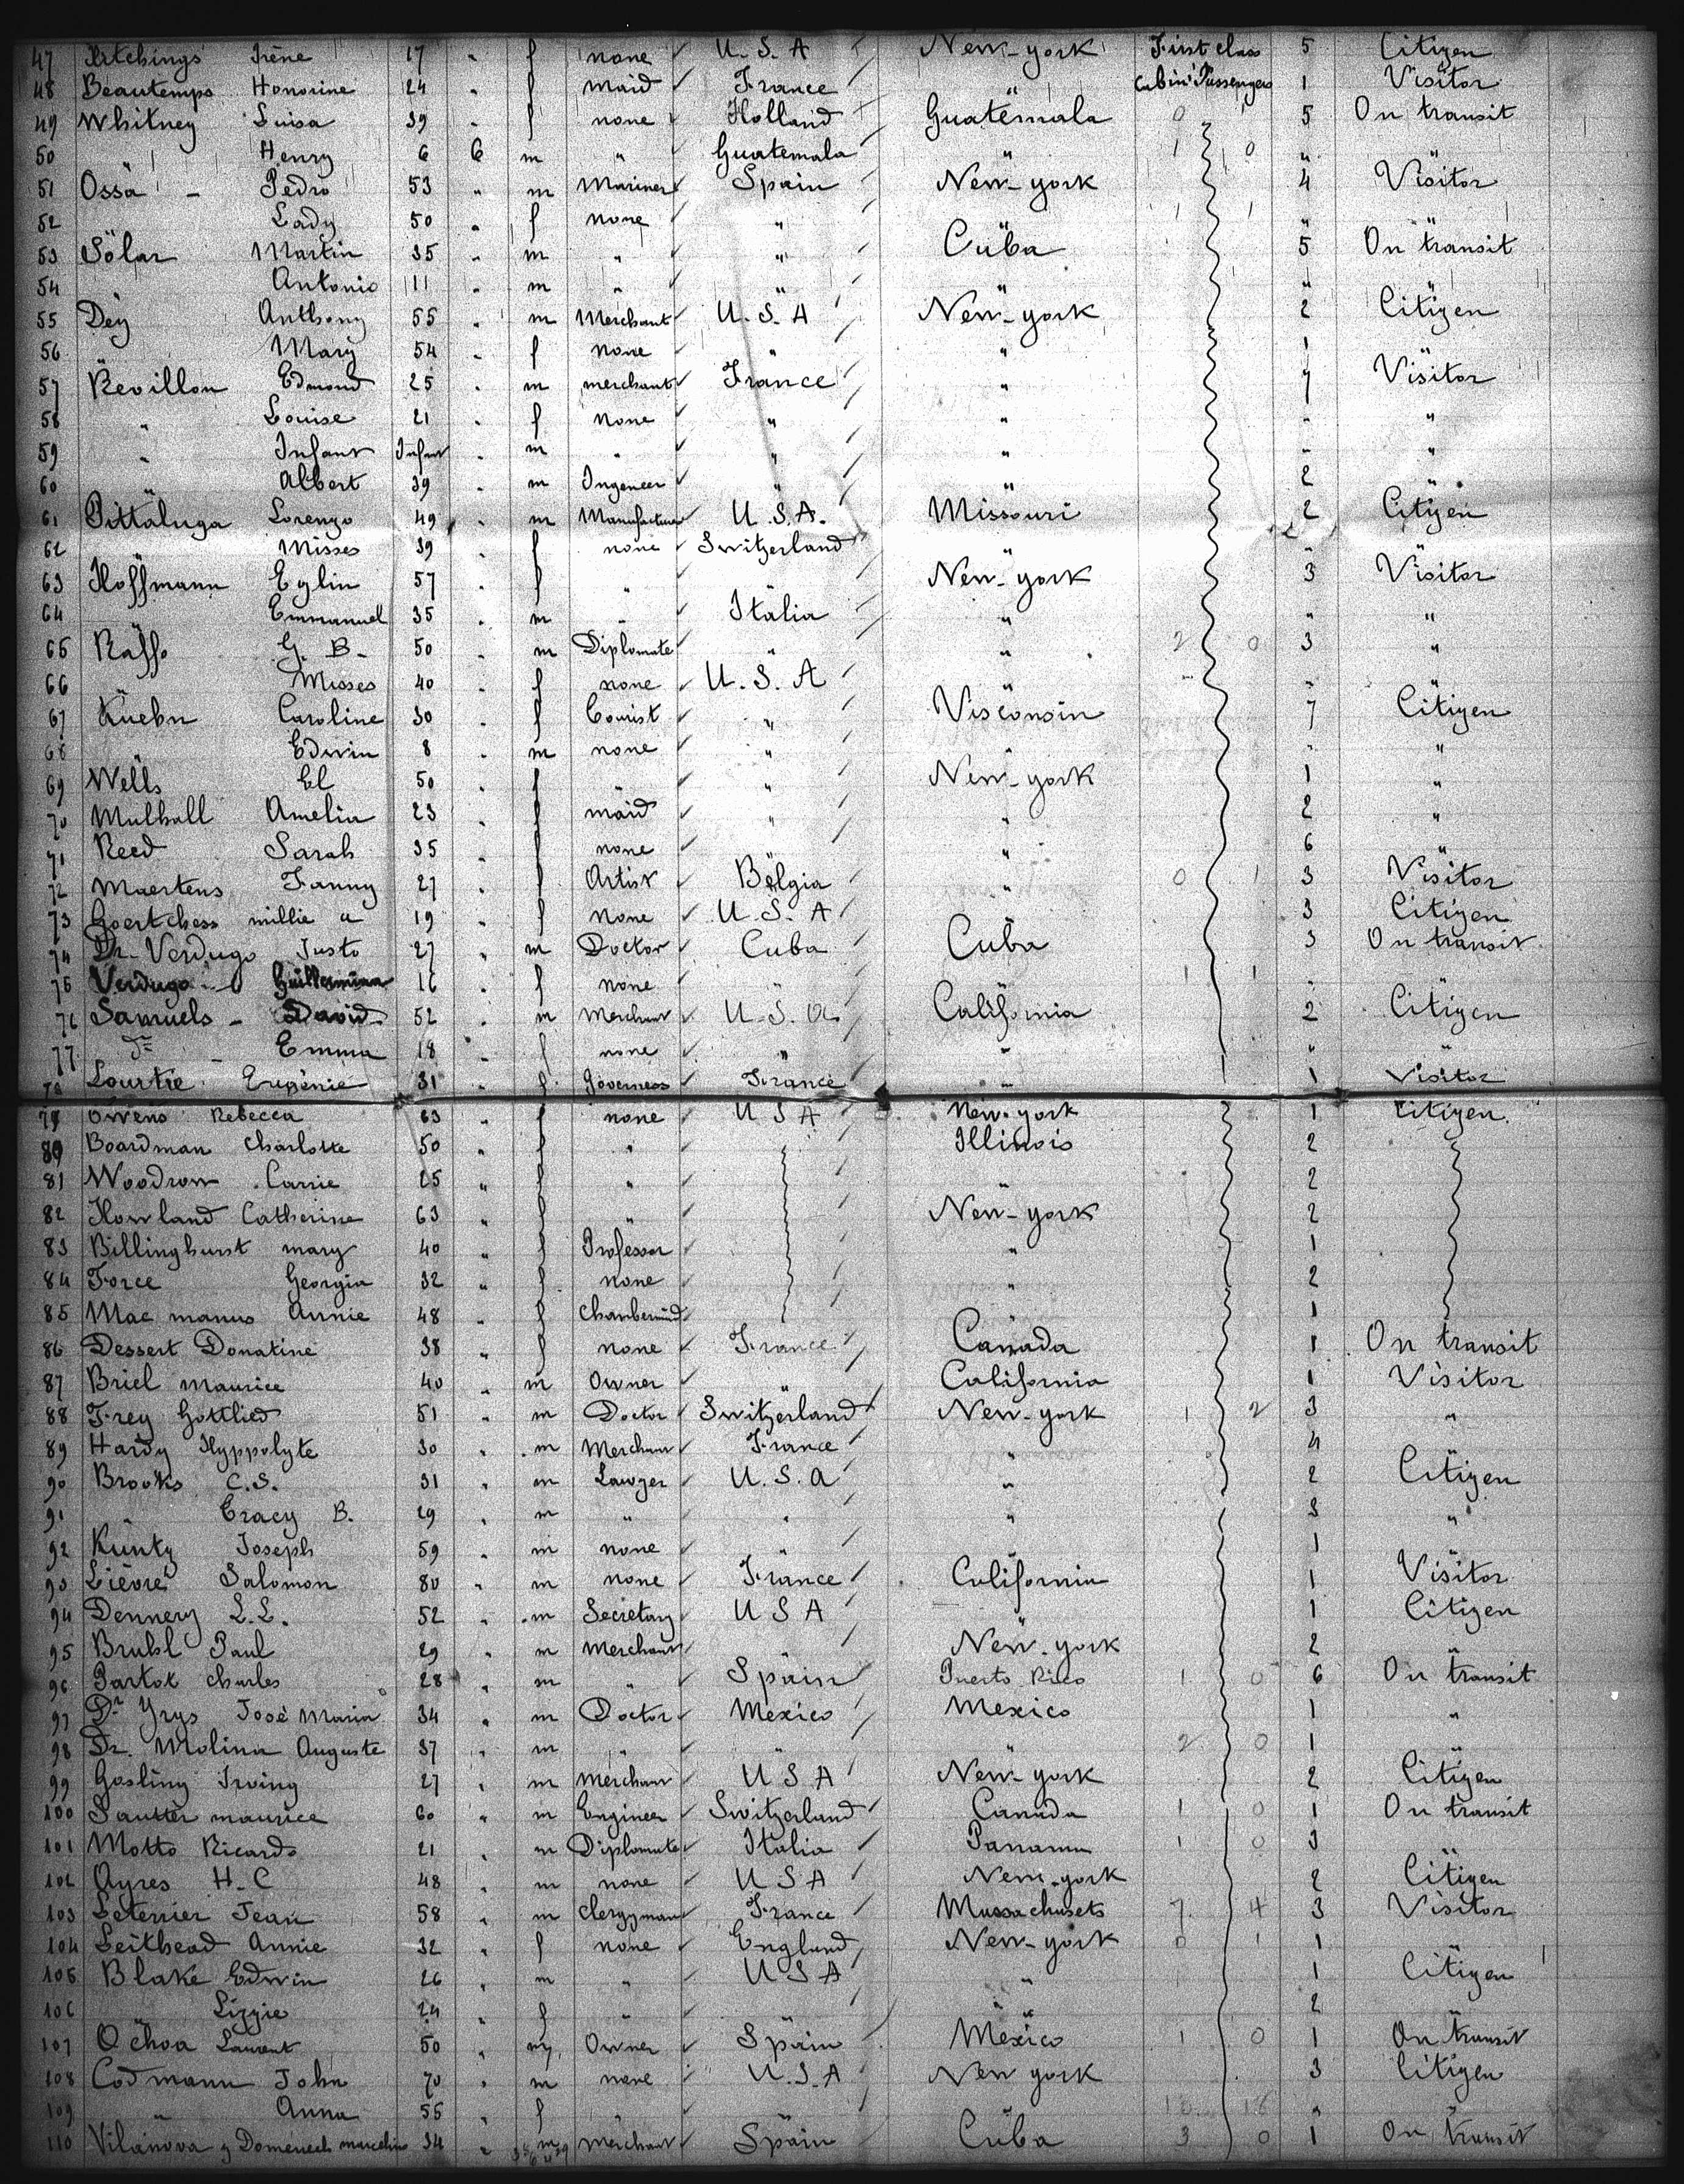 47 Hitchings Irène 17 " f none U.S.A New-york First class 5 Citizen
48 Beautemps Honorine 24 " f maid France " Cabin Passengers 1 Visitor
49 Whitney Luisa 39 " f none Holland Guatemala 0 1 5 On transit
50 " Henry 6 6 m " Guatemala " 1 0 " "
51 Ossa - Pedro 53 " m Mariner Spain New-york 4 Visitor
52 " Lady 50 " f none " " 1 1 " "
53 Sólar Martin 35 " m " " Cuba 5 On transit
54 " Antonio 11 " m " " " 1 1 " "
55 Dey Anthony 55 " m Merchant U.S.A New-york 2 Citizen
56 " Mary 54 " f none " " 1 "
57 Revillon Edmond 25 " m merchant France " 7 Visitor
58 " Louise 21 " f none " " " "
59 " Infant Infant " m " " " " "
60 " Albert 39 " m Ingeneer " " 2 "
61 Pittaluga Lorenzo 49 " m Manufacturer U.S.A. Missouri 2 Citizen
62 " Misses 39 " f none Switzerland " " "
63 Hoffmann Eglin 57 " f " " New-york 3 Visitor
64 " Emmanuel 35 " m " Italia " " "
65 Raffo G. B. 50 " m Diplomate " " 2 0 3 "
66 " Misses 40 " f none U.S.A " " "
67 Kuehn Caroline 30 " f Tourist " Visconsin 7 Citizen
68 " Edwin 8 " m none " " " "
69 Wells El 50 " f " " New-york 1 "
70 Mulhall Amelia 23 " f maid " " 2 "
71 Reed Sarah 35 " f none " " 6 "
72 Maertens Fanny 27 " f Artist Belgia " 0 1 3 Visitor
73 Goertchess millie a 19 " f none U.S.A " 3 Citizen
74 Dr. Verdugo Justo 27 " m Doctor Cuba Cuba 3 On transit
75 Verdugo Guillermina 16 " f none " " 1 1 " "
76 Samuels - David 52 " m Merchant U.S.A California 2 Citizen
77 do Emma 18 " f none " " " "
78 Lourtie Eugénie 31 " f Governess France " 1 Visitor
79 Owens Rebecca 63 " f none U S A New-york 1 Citizen
80 Boardman Charlotte 50 " f " Illinois 2
81 Woodrow Carrie 25 " f " " 2
82 Howland Catherine 63 " f " New-york 2
83 Billinghurst mary 40 " f Professor " 1
84 Force Georgia 32 " f none " 2
85 Mac manus Annie 48 " f Chanbermaid " 1
86 Dessert Donatine 38 " f none France Canada 1 On transit
87 Briel maurice 40 " m Owner " California 1 Visitor
88 Frey Gottlied 51 " m Doctor Switzerland New-york 1 2 3 "
89 Hardy Hyppolyte 30 " m Merchant France " 4 "
90 Brooks C.S. 31 " m Lawyer U.S.A " 2 Citizen
91 " Tracy B. 29 " m " " " 3 "
92 Kuntz Joseph 59 " m none " " 1 "
93 Lièvre Salomon 80 " m none France California 1 Visitor
94 Dennery L.L. 52 " m Secretary U S A " 1 Citizen
95 Bruhl Paul 29 " m Merchant " New-york 2 "
96 Partot Charles 28 " m " Spain Puerto Rico 1 0 6 On transit
97 Dr Yrys José Maria 34 " m Doctor Mexico Mexico 1 "
98 Dr. Molina Auguste 37 " m " " " 2 0 1 "
99 Gosling Irving 27 " m merchant U S A New-york 2 Citizen
100 Sautter maurice 60 " m Engineer Switzerland Canada 1 0 1 On transit
101 Motto Ricardo 21 " m Diplomate Italia Panama 1 0 3 "
102 Ayres H-C 48 " m none U S A New-york 2 Citizen
103 Leterrier Jean 58 " m Clergyman France Massachusets 7 4 3 Visitor
104 Leithead Annie 32 " f none England New-york 0 1 1 "
105 Blake Edwin 26 " m " U S A " 1 Citizen
106 " Lizzie 24 " f " " " 2 "
107 Ochoa Laurent 50 " m Owner Spain Mexico 1 0 1 On transit
108 Codmann John 70 " m none U.S.A New york 3 Citizen
109 " Anna 55 " f " " " " "
110 Vilanova y Domenech marcelino 34 " m merchant Spain Cuba 3 0 1 On transit